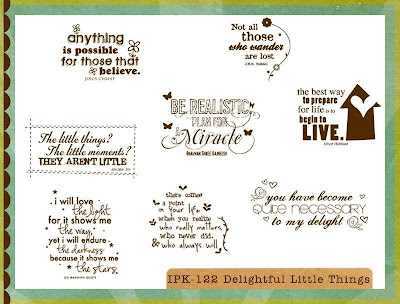 anything
is possible
for those that
believe.
JESUS CHRIST
Not all
those
who wander
are lost
BE REALISTIC
PLAN FOR
A
Miracle
BHAGWAN SHREE RAJNEESH
the best way
to prepare
for life is to
begin to
LIVE.
Elbert Hubbard
The little things?
The little moments?
THEY AREN'T LITTLE
i will love
the light
for it shows me
the way,
yet i will endure
the darkness
because it shows me
the stars.
OG MANDINO QUOTE
there comes
a point
in your life
when you realize
who really matters
who never did,
& who always will
you have become
QUITE NECESSARY
to my delight
IPK-122 Delightful Little Things